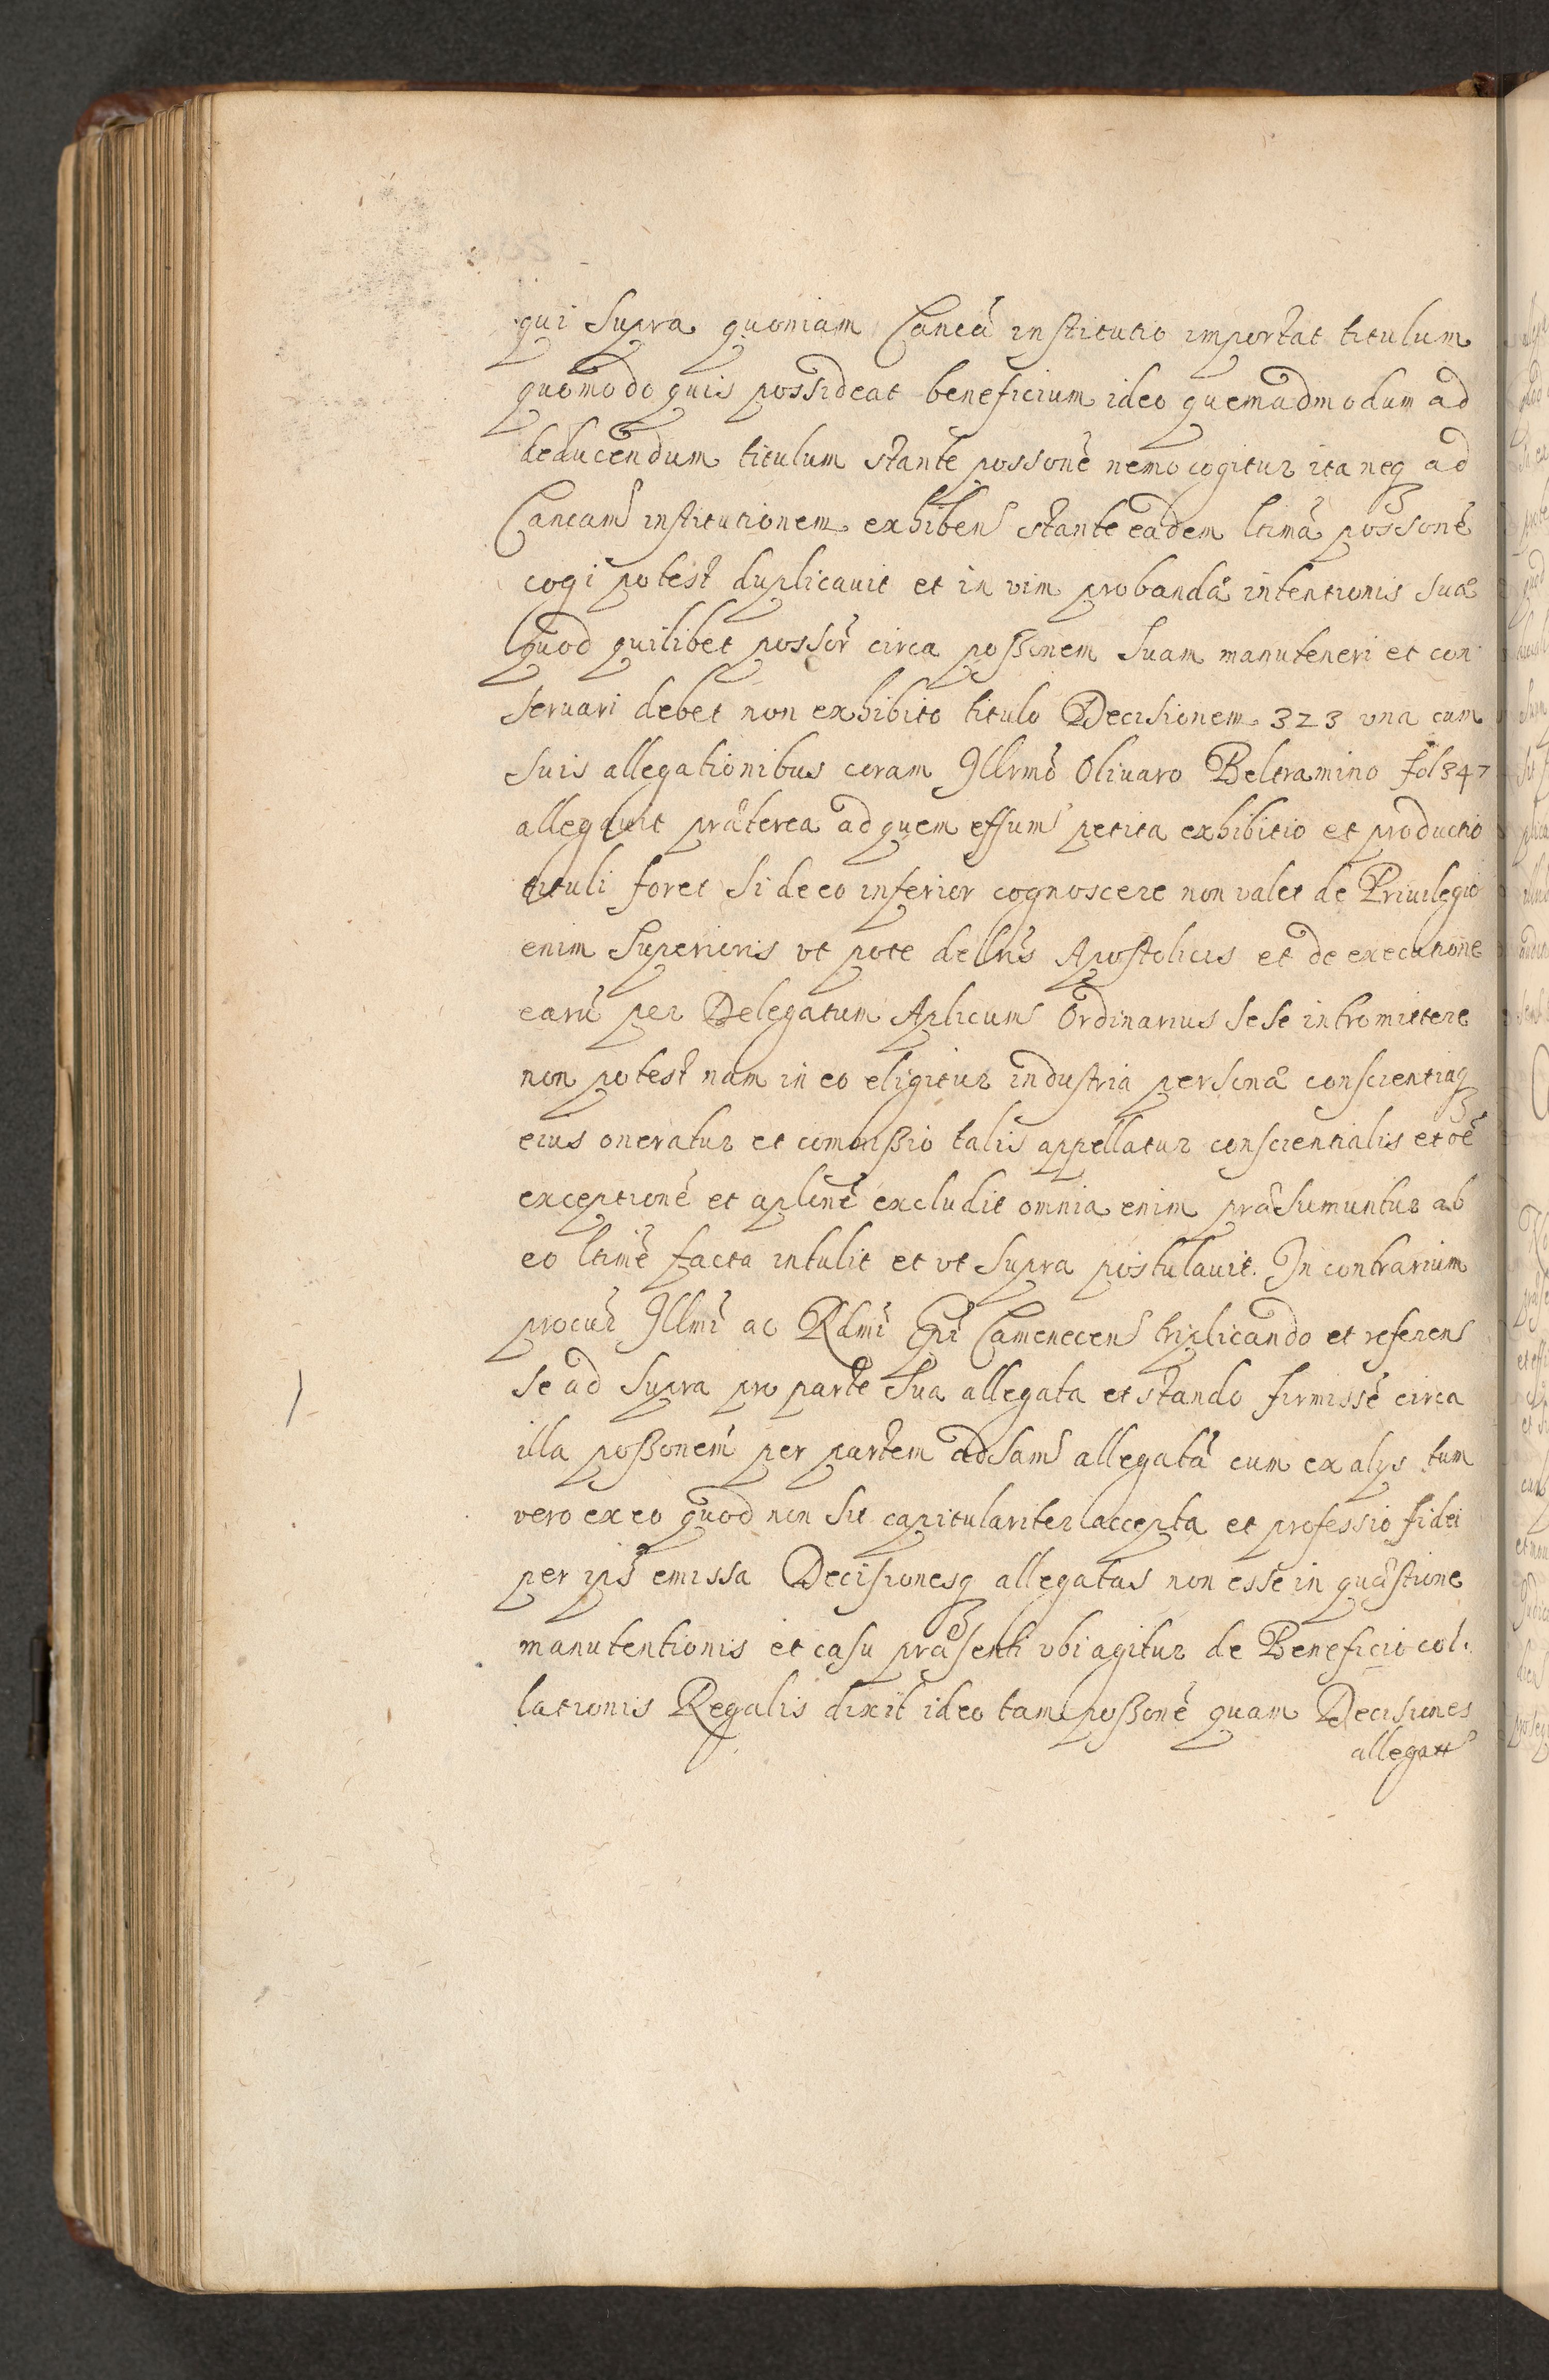 qui supra quoniam Canca institutio importat titulum
quomodo quis possideat beneficium ideo quemadmodum ad
deducendum titulum stante possone nemo cogitur ita neq ad
Cancam institutionem exhiben stante eadem ltima possone
cogi potest duplicauit et in vim probandæ intentionis suæ
quod quilibet possor circa poßonem suam manuteneri et con
seruari debet non exhibito titulo Decisionem 323 vna cum
suis allegationibus coram Illrmo Oliuaro Beltramino fol 847
allegauit præterea ad quem effum petita exhibitio et productio
tituli foret si de eo inferior cognoscere non valet de Priuilegio
enim Superioris vt pote de lris Apostolicis et de executione
earu per Delegatum Aplicum Ordinarius sese intromittere
non potest nam in eo eligitur industria personæ conscientiaq
eius oneratur et comonßio talis appellatur conscientialis et oē
exceptionē et aplnē excludit omnia enim præsumuntur ab
eo ltimē facta intulit et vt supra postulauit. In contrarium
procur Illmi ac Rdmi Epi Camenecen triplicando et referen
se ad supra pro parte sua allegata et stando firmissē circa
illa poßonem per partem adsam allegatā cum ex alys tum
vero ex eo quod non sit capitulariter accepta et professio fidei
per ips emissa Decisionesq allegatas non esse in quæstione
manutentionis et casu præsenti vbi agitur de Beneficio col.
lationis Regalis dixit ideo tam poßonē quam Decisiones
allegatt